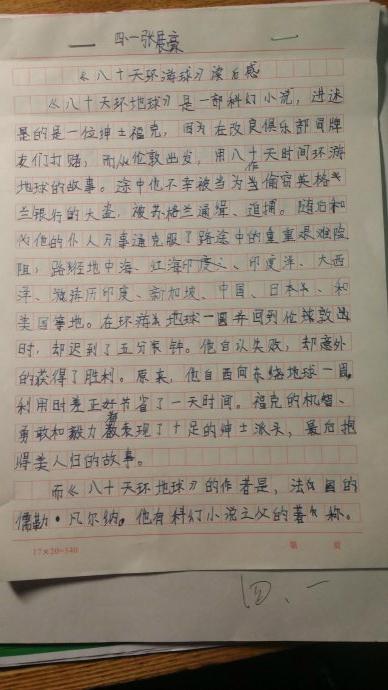 四、一张宸豪
《八十天环游球》读后感
《八十天环地球》是一部科幻小说，讲述
是的是一位绅士福克，因为在改良俱乐部同牌
友们打赌，而从伦敦出发，用八十天时间环游
地球的故事。途中他不幸被当为作偷窃英格
兰银行的大盗，被苏格兰通缉、追捕。随后和
他的仆人万事通克服了路途中的重重艰难险
阻，路经地中海、红海、印度洋、大西
洋、游历印度、新加坡、中国、日本、和
美国等地。在环游地球一圈并回到伦敦
时，却迟到了五分钟。他自认失败，却意外
的获得了胜利。原来，他自西向东绕地球一周，
利用时差正好节省了一天时间。福克的机智、
勇敢和毅力都表现了十足的绅士派头，最后抱
得美人归的故事。
而《八十天环地球》的作者是，法国的
儒勒·凡尔纳。他有科幻小说之父的著称。
17×20=340
第 页
四、一